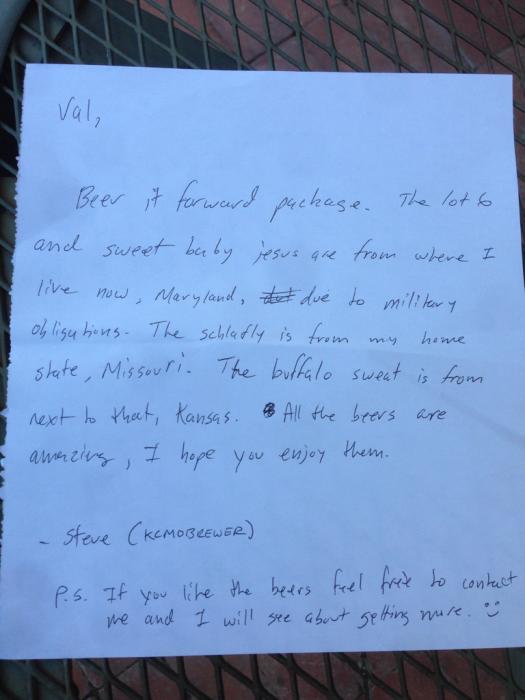 Val,
Beer it forward package. The lot 6
and sweet baby jesus are from where I
live now, Maryland, due to military
obligations. The schlafly is from my home
state, Missouri. The buffalo sweat is from
next to that, Kansas. All the beers are
amazing, I hope you enjoy them.
- Steve (KCMOBREWER)
P.S. If you like the beers feel free to contact
me and I will see about getting more. :)